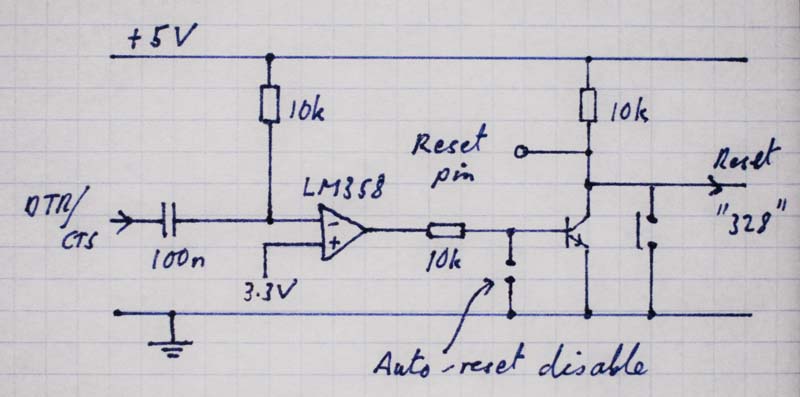 +5V
10k
10k
Reset
pin
Reset
LM358
DTR/
CTS
"328"
100n
10k
3.3V
Auto-reset disable